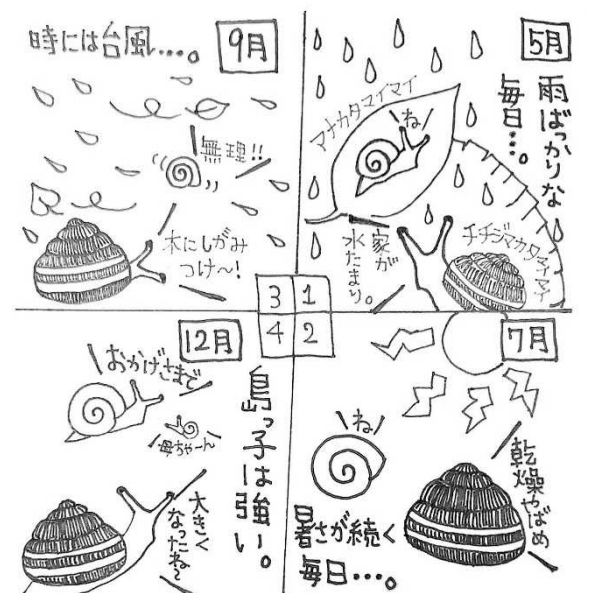 5月
雨ばっかりな
毎日…。
アナカタマイマイ
ね
チチジマカタマイマイ
家が
水たまり。
7月
ね
乾燥やばめ
暑さが続く
毎日…。
9月
時には台風…。
無理!!
木にしがみ
つけ〜!
12月
おかげさまで
母ちゃーん
大きく
なったね〜
島っ子は強い。
3 1
4 2